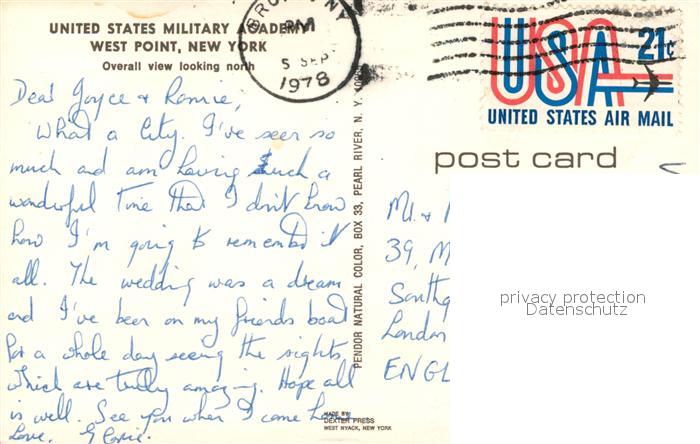 UNITED STATES MILITARY ACADEMY
WEST POINT, NEW YORK
Overall view looking north
BRONX, NY
PM
5 SEP
1978
USA 21c
UNITED STATES AIR MAIL
post card
Dear Joyce & Ronnie,
What a City. I've seen so
much and am having such a
wonderful time that I don't know
how I'm going to remember it
all. The wedding was a dream
and I've been on my friends boat
for a whole day seeing the sights,
which are truly amazing. Hope all
is well. See you when I come home
Love,
PENDOR NATURAL COLOR, BOX 33, PEARL RIVER, N. Y.
MADE BY
DEXTER PRESS
WEST NYACK, NEW YORK
Mr. &
39, M
Southg
London
ENGL
privacy protection
Datenschutz